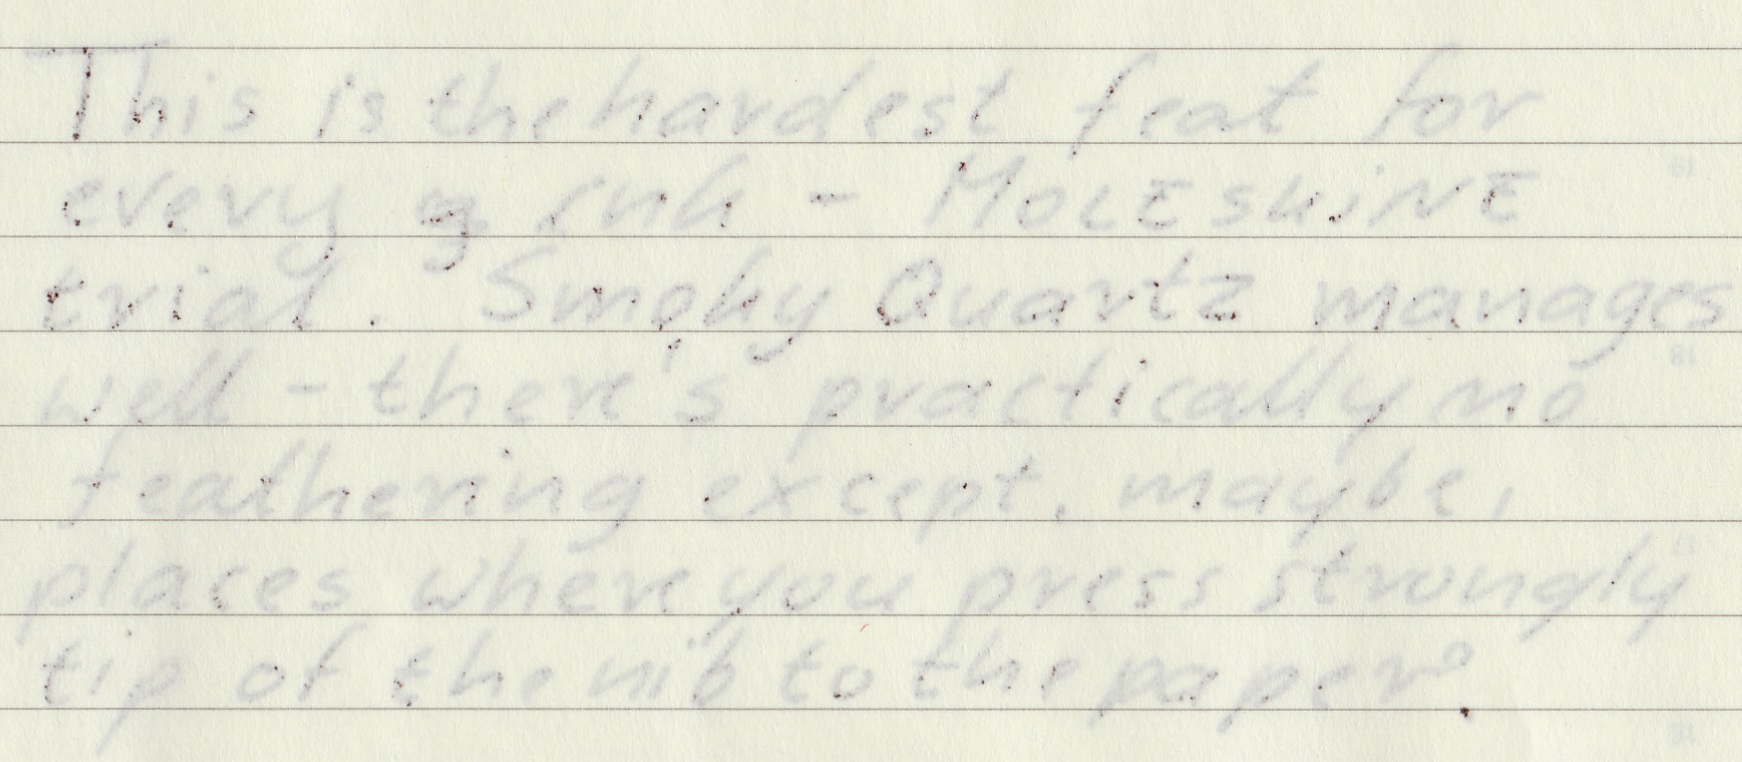 This is the hardest feat for
every ink - MOLESKINE
trial. Smoky Quartz manages
well - there's practically no
feathering except, maybe,
places where you press strongly
tip of the nib to the paper.